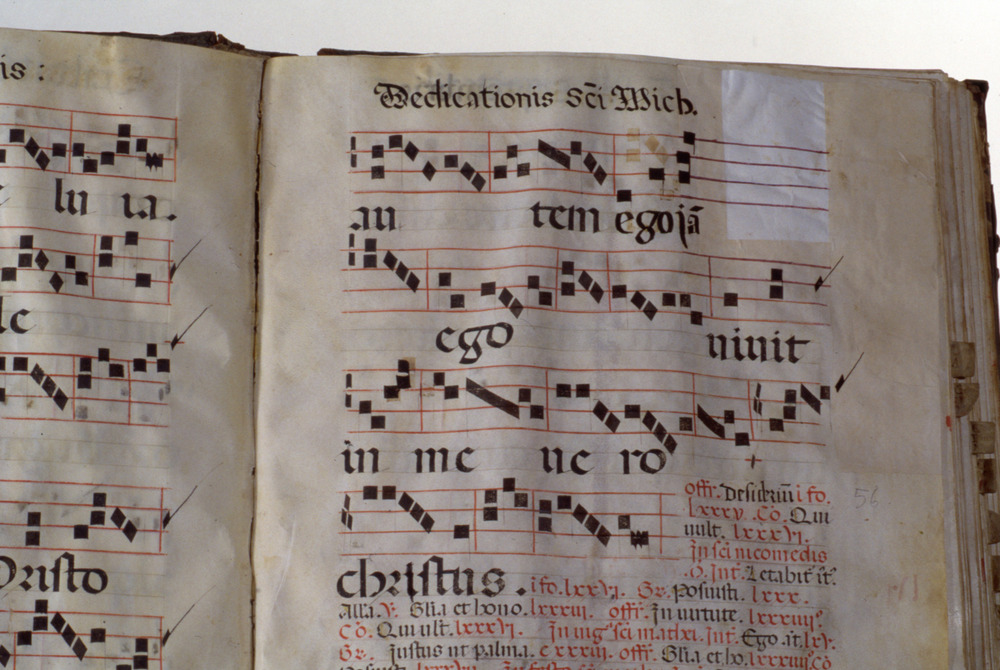 is :
lu ia.
le
Christo
Dedicationis Sc̃i Mich.
au tem ego iã
ego uiuit
in me ue ro
christus. i fo. lxxvi. Gr. Posuisti. lxxx.
offr. Desideriũ i fo.
lxxxv. Co. Qui
uult. lxxxvi.
In sc̃i nicomedis
Int̃. Letabit̃
Alla. V. Gl̃ia et hono. lxxxiii. offr. In uirtute. lxxxiiii.
Co. Qui uult. lxxxvi. In uig̃ sc̃i mathei. Int̃. Ego
Gr. Justus ut palma. offr. Gl̃ia et ho.
56